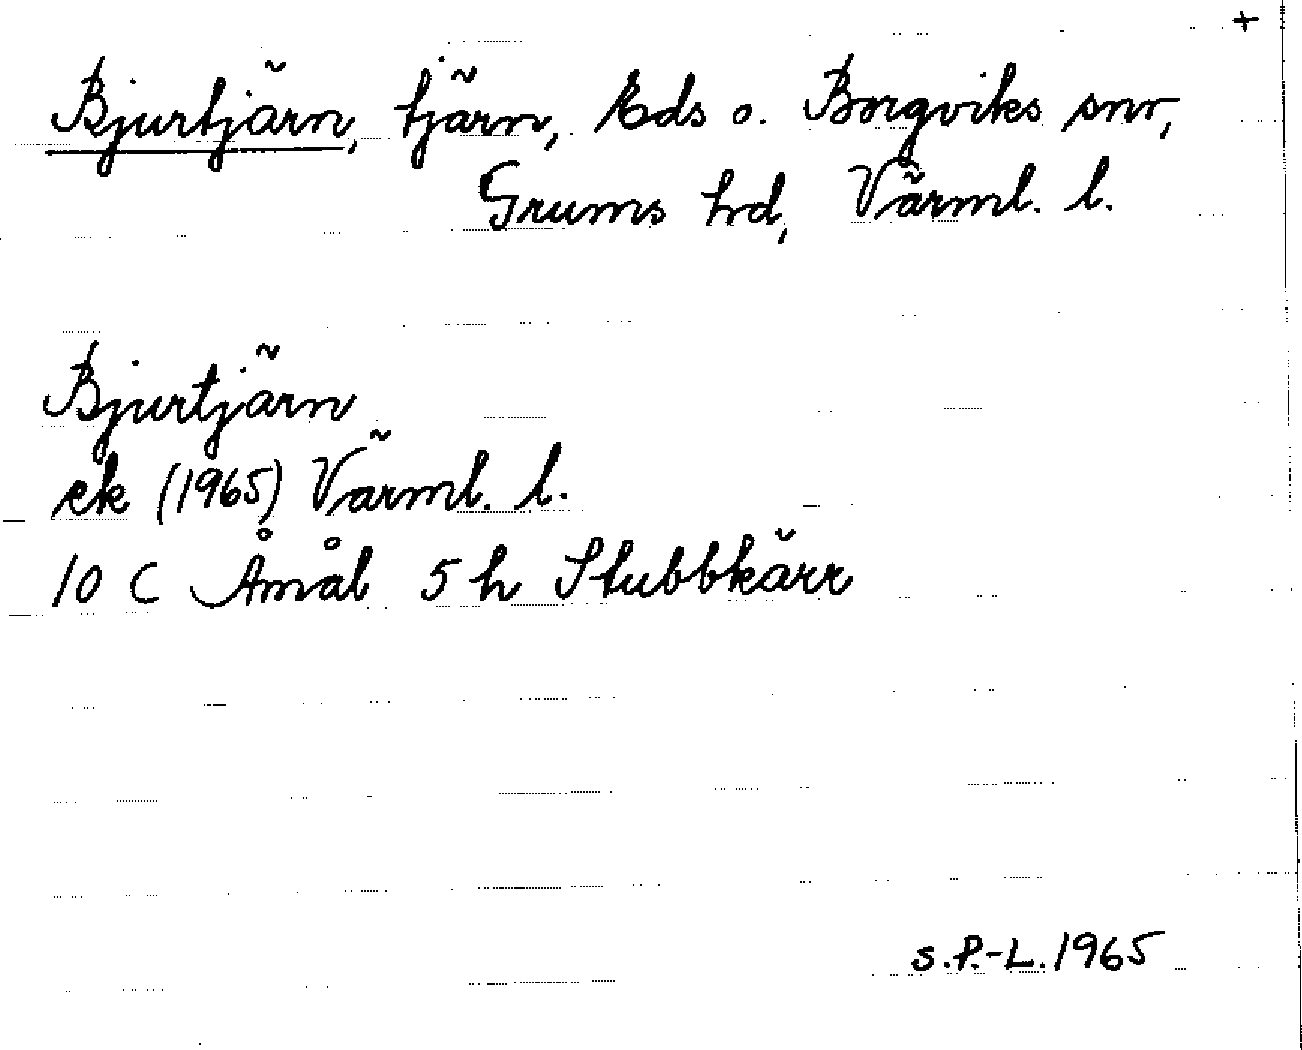 +
Bjurtjärn, tjärn, Eds o. Borgviks snr,
Grums hd, Värml. l.
Bjurtjärn
ek (1965) Värml. l.
10 C Åmål 5 h Stubbkärr
S.P.-L. 1965